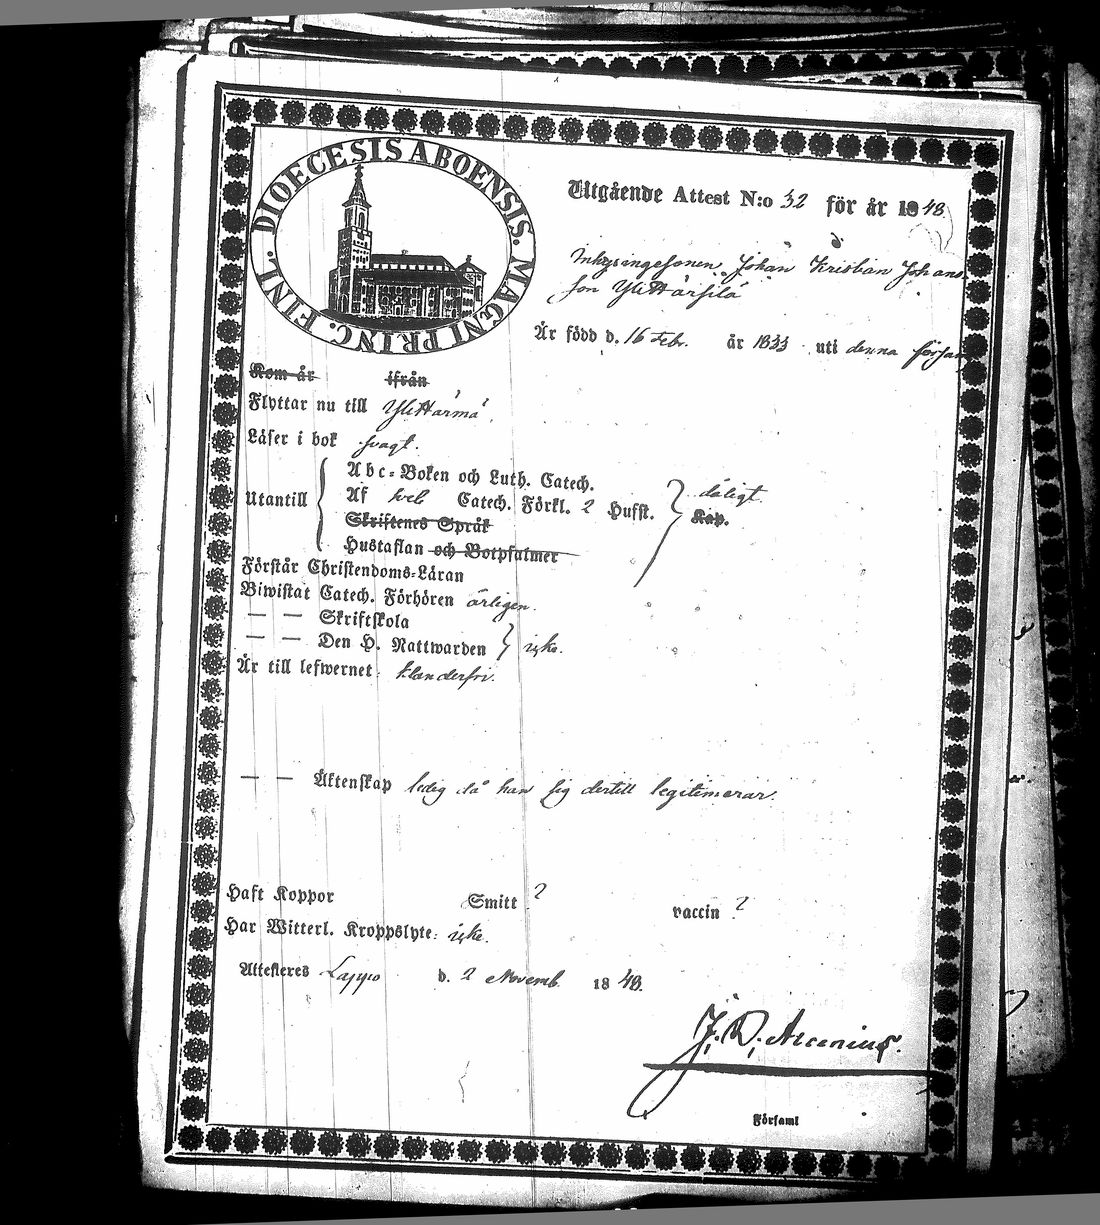 DIOECESIS ABOENSIS. MAGNI PRINC. FINL.
Utgående Attest N:o 32 för år 1848
Inhysingesonen Johan Kristian Johans
son YliHärsilä
Är född d. 16 Febr. år 1833 uti denna försam
Kom år ifrån
Flyttar nu till YliHärmä
Läser i bok svagt.
Utantill
Abc-Boken och Luth. Catech.
Af Catech. Förkl. 2 Hufst.
dåligt
Kap.
Skriftenes Språk
Hustaflan och Botpsalmer
Förstår Christendoms-Läran
Biwistat Catech. Förhören årligen.
— — Skriftskola
— — Den H. Nattwarden icke.
Är till lefwernet klanderfri.
— — Äktenskap ledig då han sig dertill legitimerar.
Haft Koppor Smitt ? vaccin ?
Har Witterl. Kroppslyte: icke.
Attesteres Lappo d. 2 Novemb. 1848.
J. D. Alcenius.
Församl